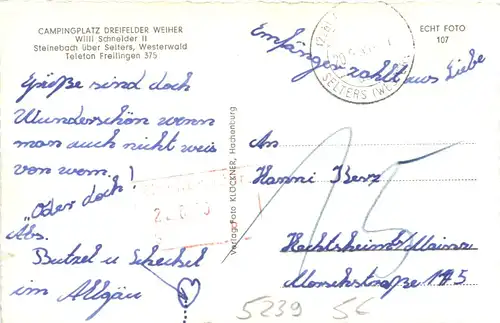 CAMPINGPLATZ DREIFELDER WEIHER
Willi Schneider II
Steinebach über Selters, Westerwald
Telefon Freilingen 375
ECHT FOTO
107
SELTERS (WES
Empfänger zahlt aus Liebe
Grüße sind doch
Wunderschön wenn
man auch nicht weis
von wem.!
"Oder doch"
Abs.
Butzel u Scheckel
im Allgäu
Verlag Foto KLÖCKNER, Hachenburg
An
Hanni Berz
Hechtsheim b/Mainz
Morschstraße 115
15
5239 56